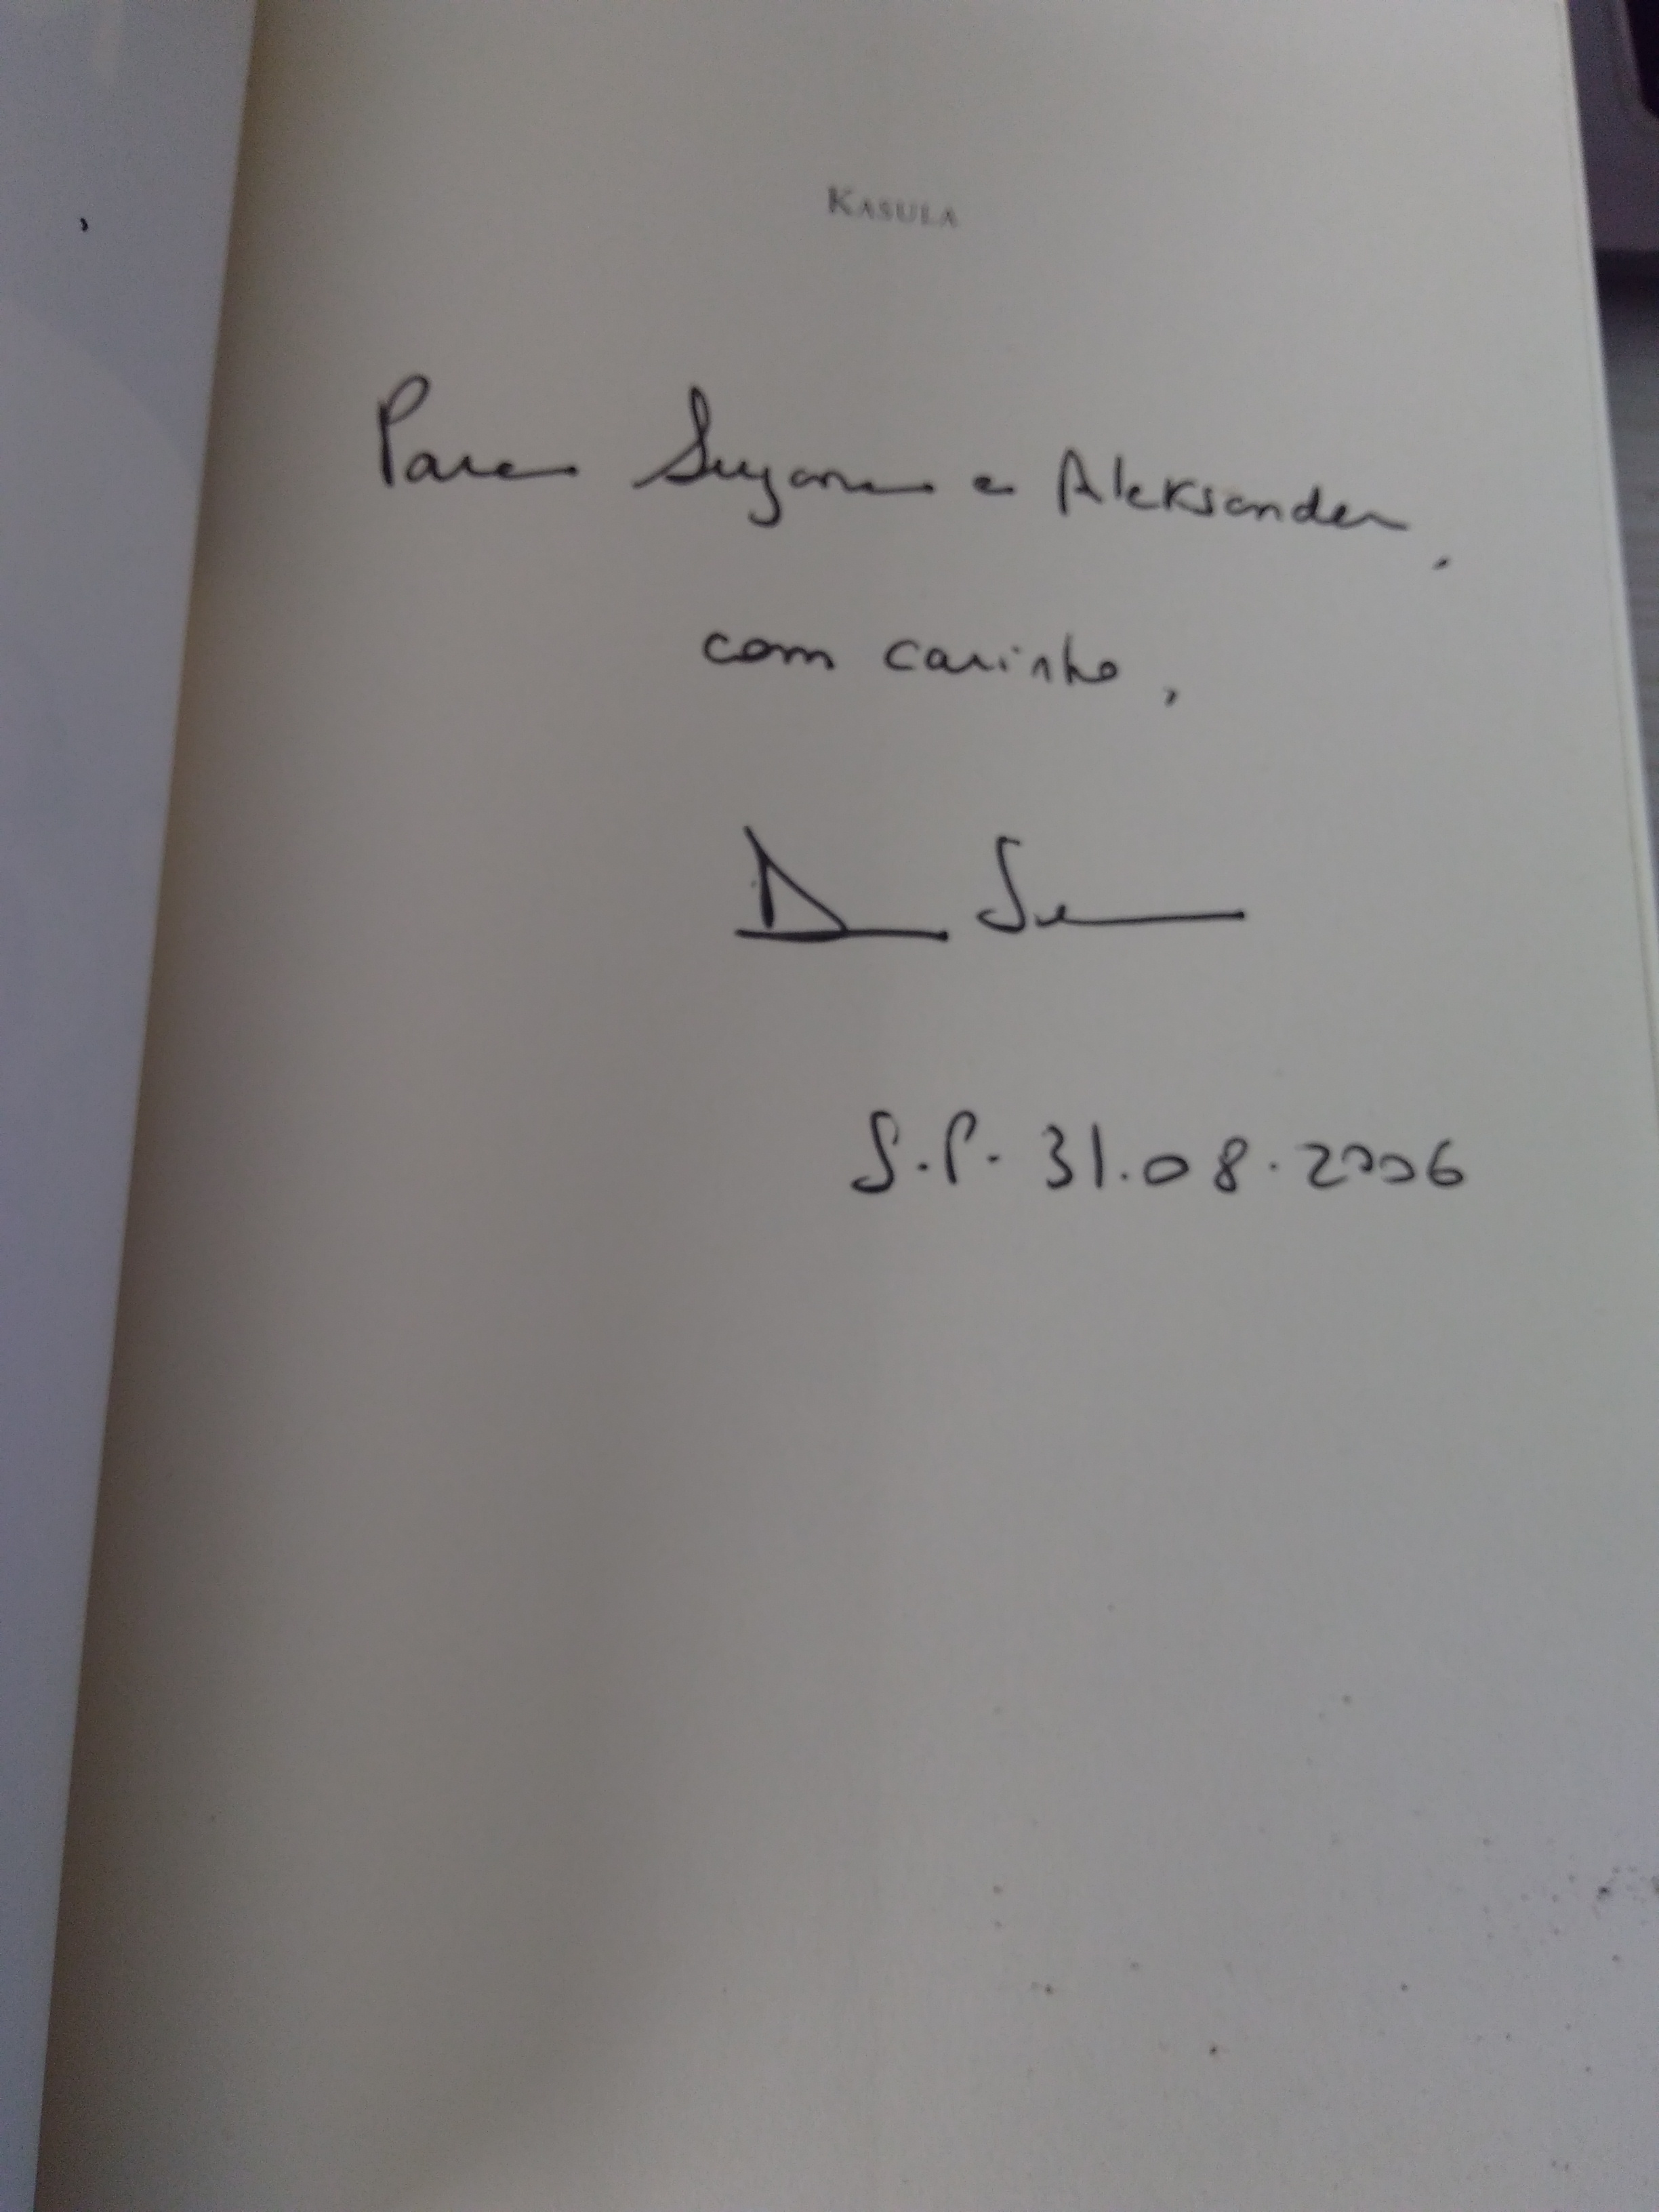 KASULA
Para Suzana e Aleksander,
com carinho,
S.P. 31.08.2006